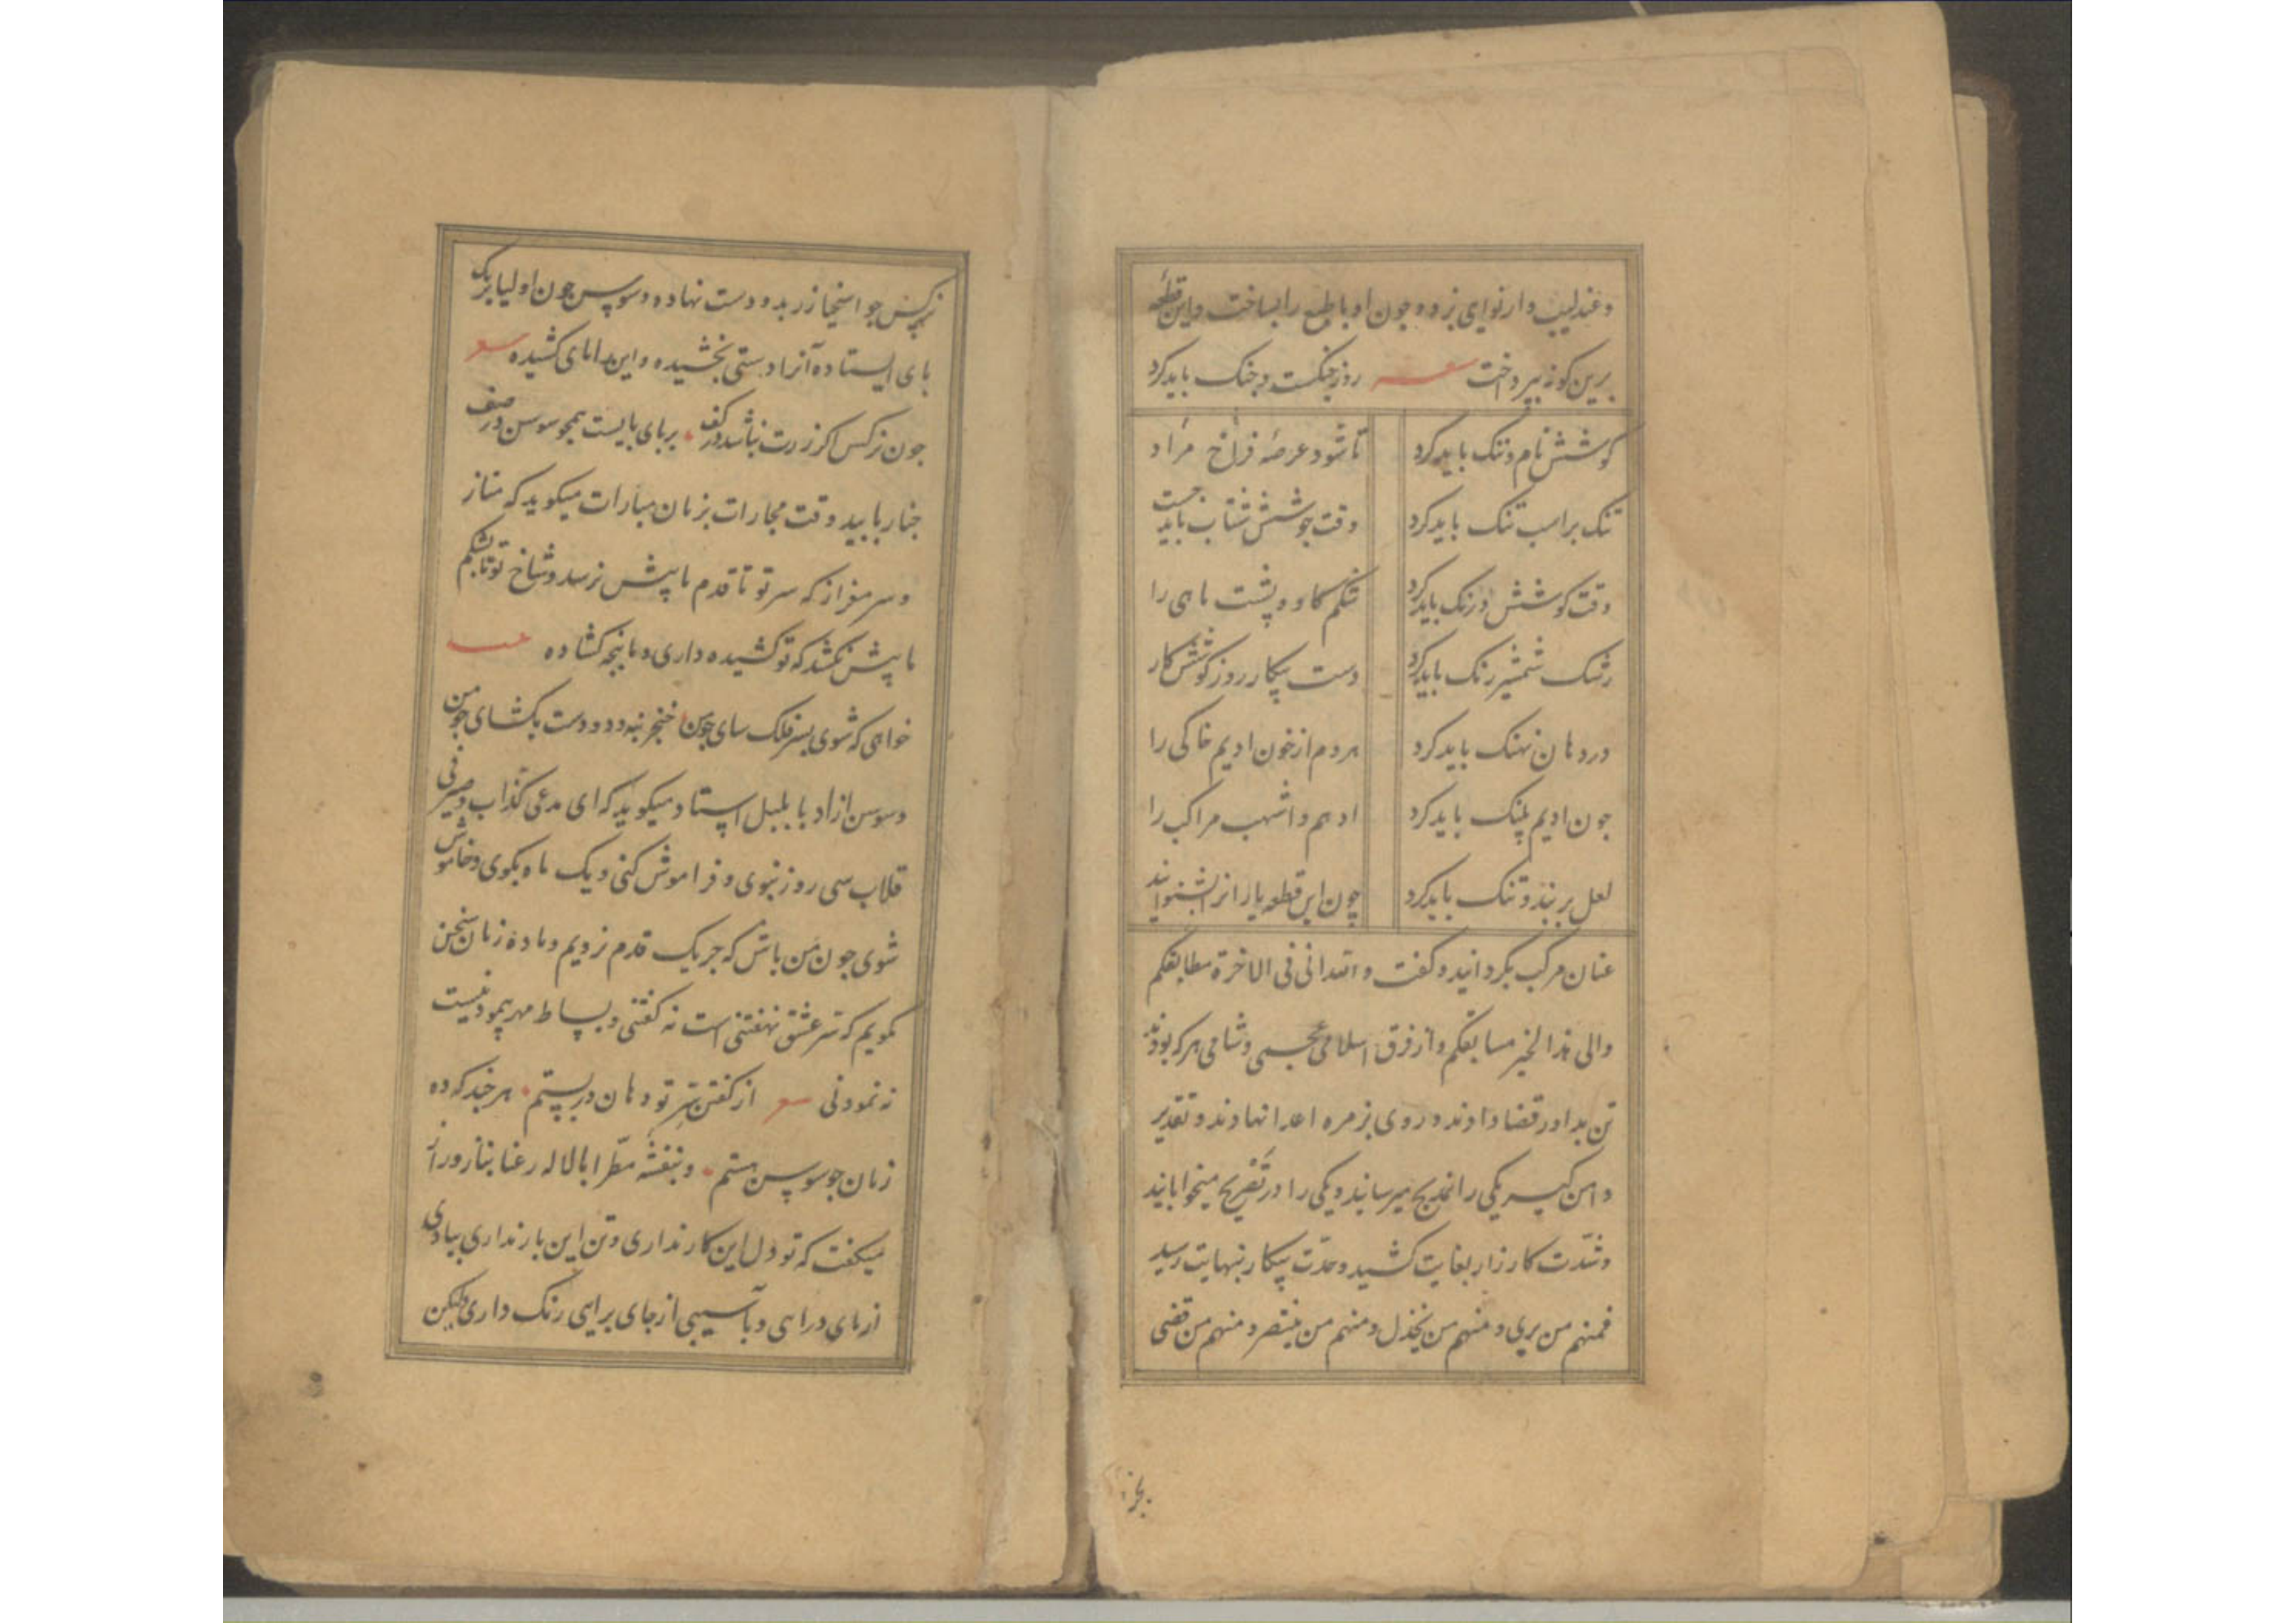 وعندلیب وار نوای بزد و چون او با طبع را بساخت و این قطعه
برین کونه بپرداخت شعر روز جنکست و جنک باید کرد
کوشش نام و ننک باید کرد تا شود عرصهٔ فراخ مراد
تنک بر اسب تنک باید کرد وقت جوشش شتاب باید جست
وقت کوشش درنک باید کرد شکم کاو و پشت ماهی را
رشک شمشیر رنک باید کرد دست پیکار روز کوشش کار
در دهان نهنک باید کرد هر دم از خون ادیم خاکی را
جون ادیم پلنک باید کرد ادهم و اشهب مراکب را
لعل بربند و تنک باید کرد چون این قطعه یارانرا بشنوانید
عنان مرکب بکردانید و کفت واتعدانی فی الاخرة مطابقکم
والی هذا لخیر مسابقکم و از فرق اسلامی نجیبی و شامی هرکه بودند
تن بداور قضا دادند و روی بزمره اعدا نهادند و تقدیر
دامن کیر یکی را بمدبح میرسانید و یکی را در تفریح میخوابانید
و شدّت کارزار بغایت کشید و حدّت پیکار بنهایت رسید
فمنهم من یری و منهم من یخذل و منهم من ینتصر و منهم من قضی
نرکس جو اسخیا زر بدو دست نهاده و سوسن جون اولیا بر یک
بای ایستاده آنرا دستی بخشیده و این را بای کشیده شعر
جون نرکس اکر زرت نباشد در کف بر بای بایست همجو سوسن در صف
جنار با بید وقت مجارات بزبان مبارات میکوید که مناز
و سر مفراز که سر تو تا قدم ما پیش نرسد و شاخ تو تا شکم
ما پیش نکشد که تو کشیده داری و ما پنجه کشاده شعر
خواهی که شوی بسر فلک سای جو من خنجر بنه و دو دست بکشای جو من
و سوسن ازاد با بلبل استاد میکوید که ای مدعی کذاب و صیرفی
قلاب سی روز نبوی و فراموش کنی و یک ماه بکوی و خاموش
شوی جون من باش که جز یک قدم نرویم و با ده زبان سخن
نکویم که سر عشق نهفتنی است نه کفتنی و بساط مهر پیمودنیست
نه نمودنی شعر از کفتن سر تو دهان در بستم هر جند که ده
زبان جو سوسن هستم و بنفشه مطّرا با لاله رعنا بناز و راز
میکفت که تو دل این کار نداری و تن این بار نداری ببادی
از بای درایی و بآسیبی از جای برایی رنک داری ولیکن
بخز